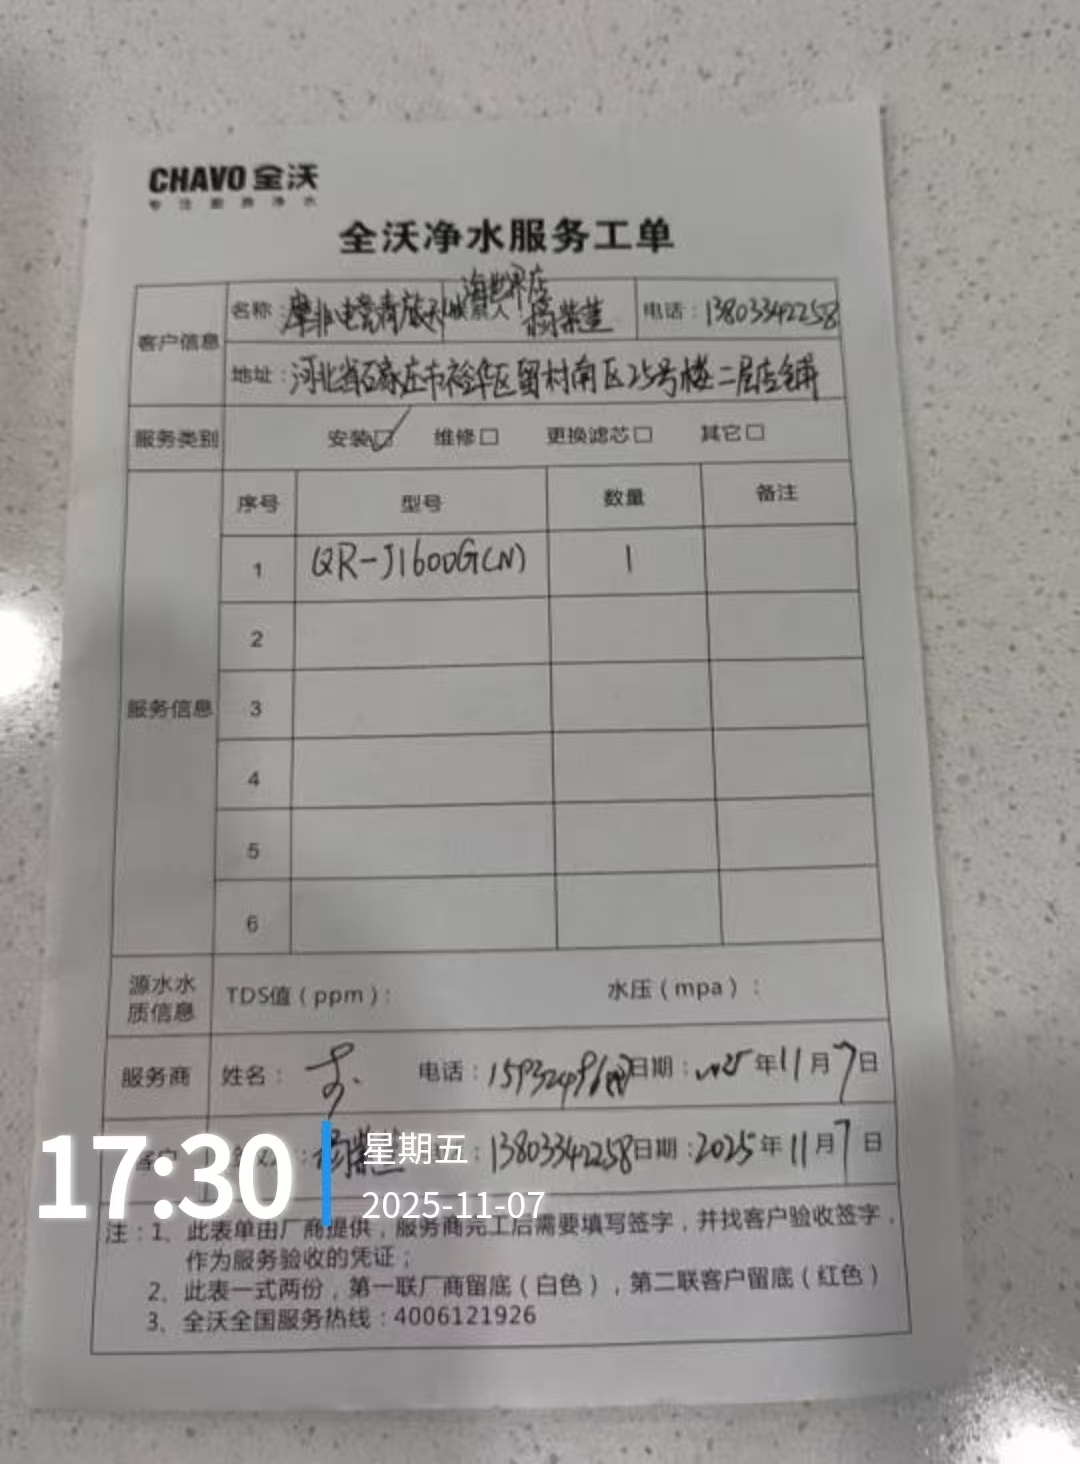 CHAVO 全沃
专注厨房净水
全沃净水服务工单
海世界店
客户信息 名称：摩非电竞青旅 联系人 杨紫莲 电话：13803342258
地址：河北省石家庄市裕华区留村南区25号楼二层店铺
服务类别 安装☑ 维修□ 更换滤芯□ 其它□
服务信息
序号 型号 数量 备注
1 QR-J1600G(N) 1
2
3
4
5
6
源水水质信息 TDS值（ppm）： 水压（mpa）：
服务商 姓名： 电话： 日期：2025年11月7日
客户 电话：13803342258 日期：2025年11月7日
17:30 星期五
2025-11-07
注：1、此表单由厂商提供，服务商完工后需要填写签字，并找客户验收签字，
作为服务验收的凭证；
2、此表一式两份，第一联厂商留底（白色），第二联客户留底（红色）
3、全沃全国服务热线：4006121926